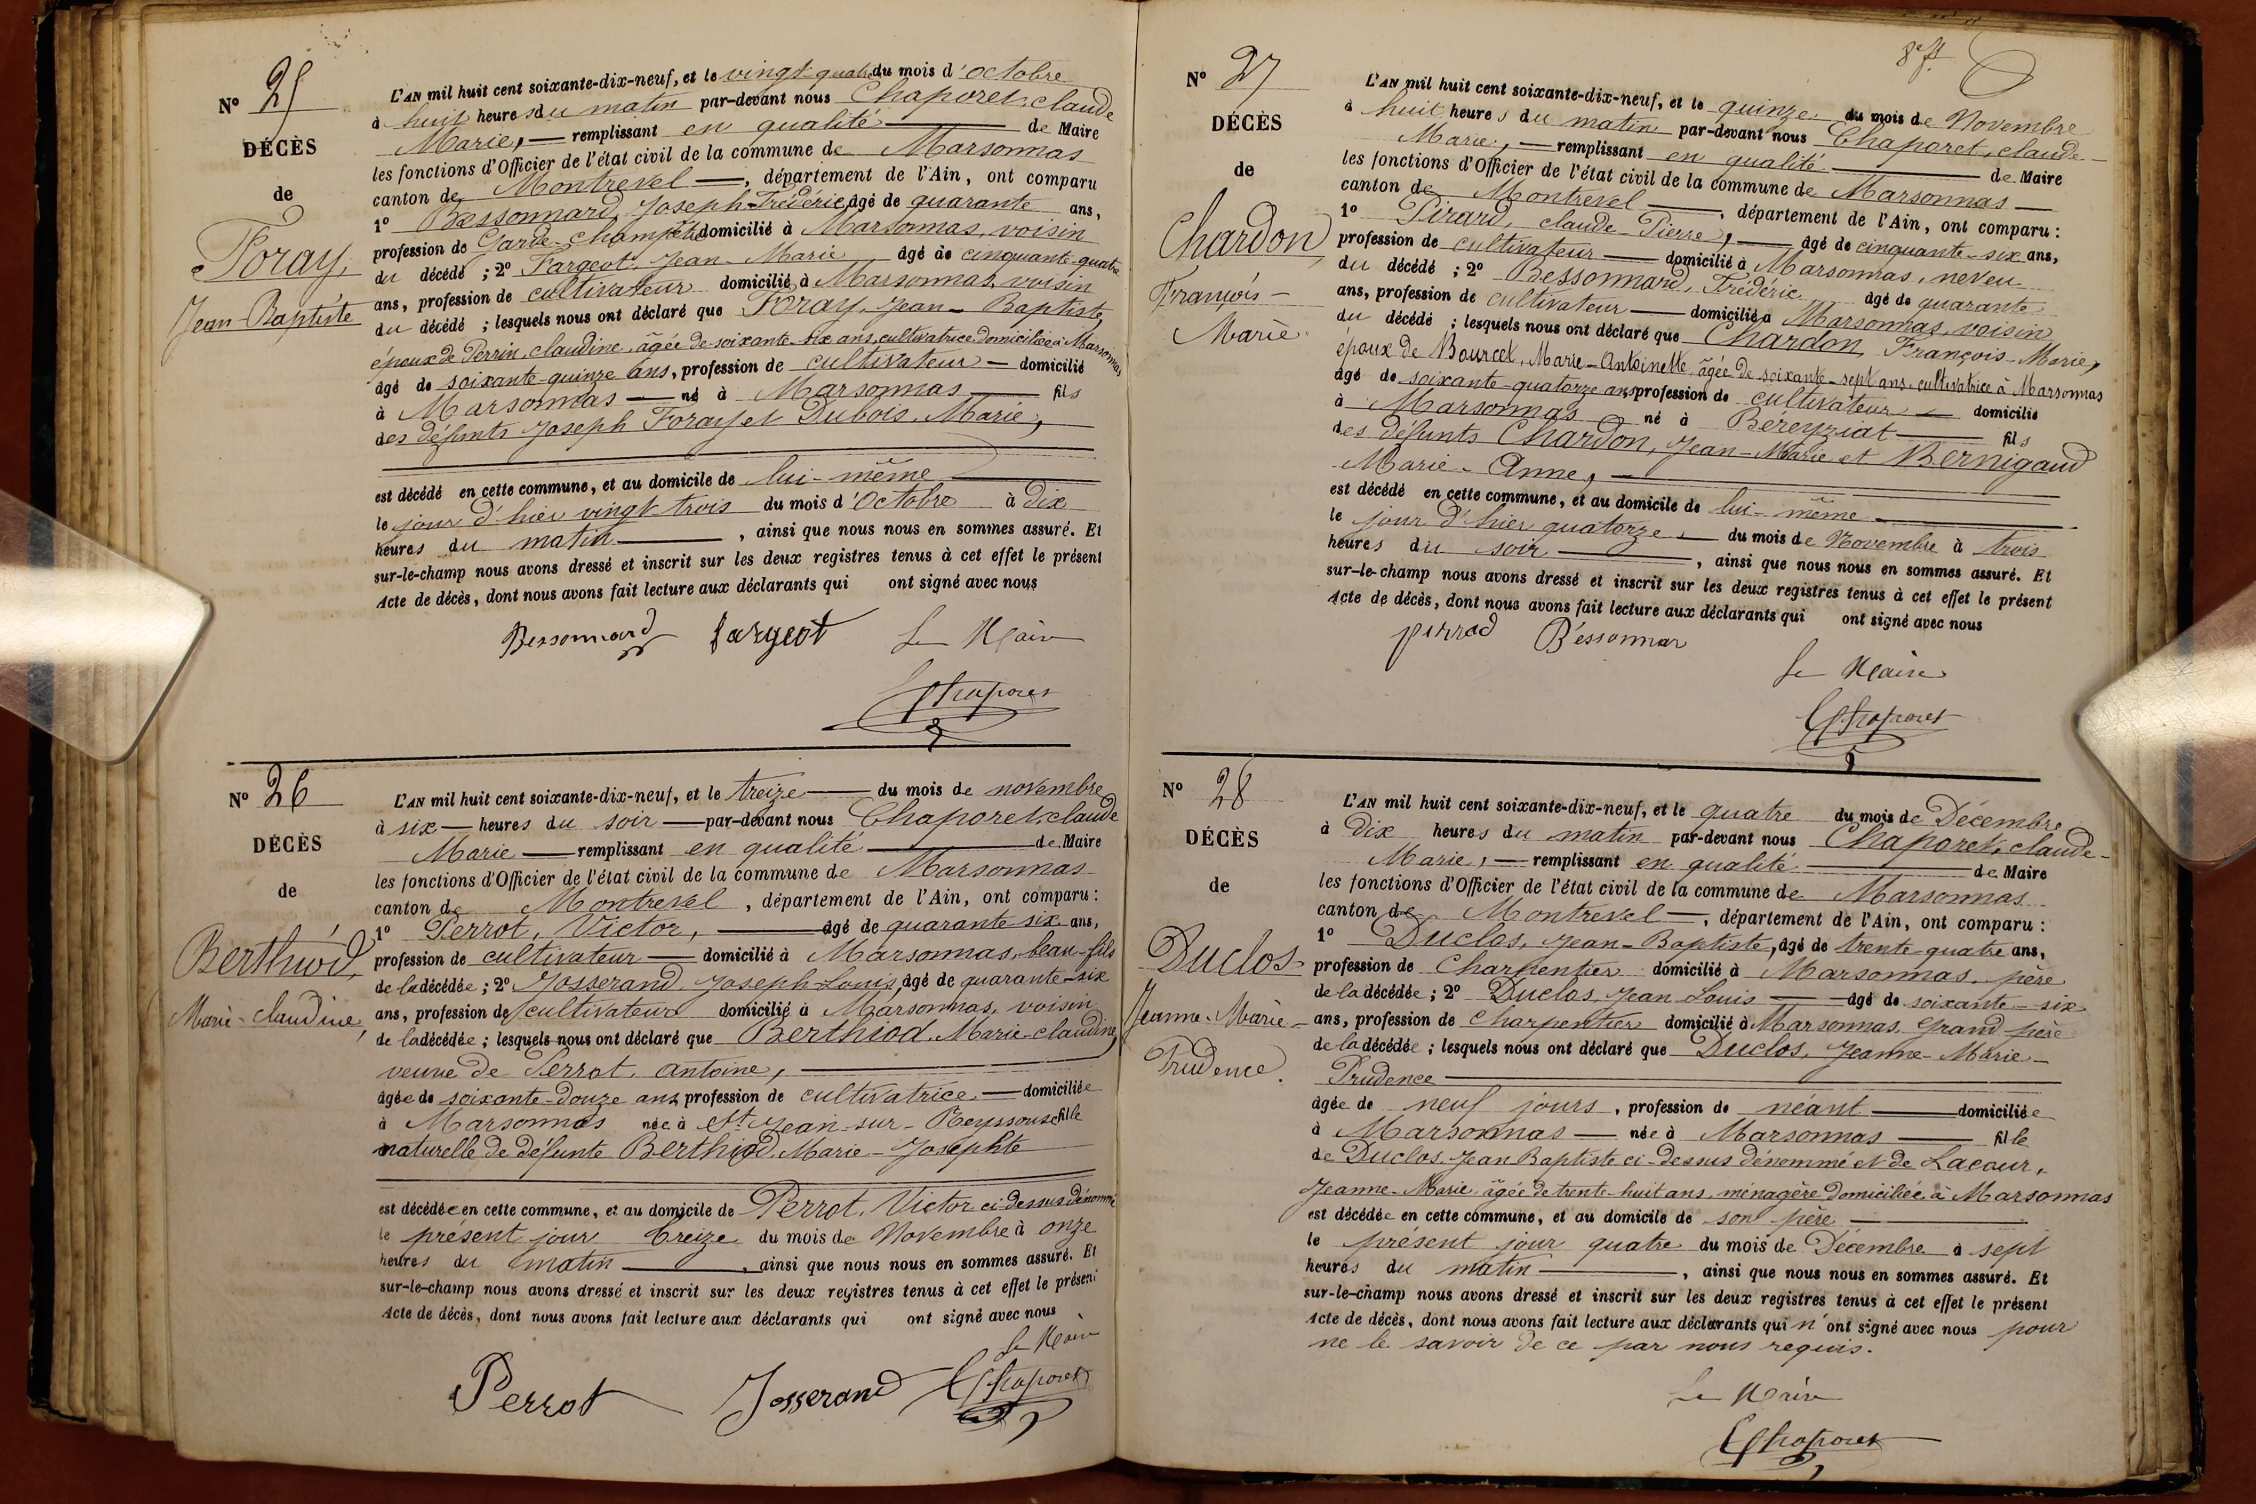 N° 25
DÉCÈS
de
Foray,
Jean-Baptiste
L'AN mil huit cent soixante-dix-neuf, et le vingt-quatre du mois d'octobre
à huit heures du matin par-devant nous Chaporet, claude
Marie, — remplissant en qualité — de Maire
les fonctions d'Officier de l'état civil de la commune de Marsonnas
canton de Montrevel —, département de l'Ain, ont comparu
1° Bessonnard, Joseph-Frédéric, âgé de quarante ans,
profession de Garde-champêtre domicilié à Marsonnas, voisin
du décédé ; 2° Fargeot, Jean-Marie âgé de cinquante-quatre
ans, profession de cultivateur domicilié à Marsonnas, voisin
du décédé ; lesquels nous ont déclaré que Foray, Jean-Baptiste,
époux de Perrin, claudine, âgée de soixante-six ans, cultivatrice domiciliée à Marsonnas
âgé de soixante-quinze ans, profession de cultivateur — domicilié
à Marsonnas — né à Marsonnas — fils
des défunts Joseph Foray et Dubois, Marie,
est décédé en cette commune, et au domicile de lui-même
le jour d'hier vingt trois du mois d'Octobre à dix
heures du matin —, ainsi que nous nous en sommes assuré. Et
sur-le-champ nous avons dressé et inscrit sur les deux registres tenus à cet effet le présent
Acte de décès, dont nous avons fait lecture aux déclarants qui ont signé avec nous
Bessonnard fargeot Le Maire
Chaporet
N° 26
DÉCÈS
de
Berthiod,
Marie-claudine,
L'AN mil huit cent soixante-dix-neuf, et le treize — du mois de novembre
à six — heures du soir — par-devant nous Chaporet, claude
Marie — remplissant en qualité — de Maire
les fonctions d'Officier de l'état civil de la commune de Marsonnas
canton de Montrevel, département de l'Ain, ont comparu :
1° Perrot, Victor, — âgé de quarante-six ans,
profession de cultivateur — domicilié à Marsonnas, beau-fils
de la décédée ; 2° Josserand, Joseph-Louis, âgé de quarante-six
ans, profession de cultivateur domicilié à Marsonnas, voisin
de la décédée ; lesquels nous ont déclaré que Berthiod, Marie-claudine,
veuve de Perrot, antoine, —
âgée de soixante-douze ans, profession de cultivatrice — domiciliée
à Marsonnas née à St Jean-sur-Reyssouse fille
naturelle de défunte Berthiod, Marie-Josephte
est décédée en cette commune, et au domicile de Perrot, Victor ci-dessus dénommé
le présent jour treize du mois de Novembre à onze
heures du matin —, ainsi que nous nous en sommes assuré. Et
sur-le-champ nous avons dressé et inscrit sur les deux registres tenus à cet effet le présent
Acte de décès, dont nous avons fait lecture aux déclarants qui ont signé avec nous
Le Maire
Perrot Josserand Chaporet
N° 27
DÉCÈS
de
Chardon,
François-
Marie
L'AN mil huit cent soixante-dix-neuf, et le quinze du mois de Novembre
à huit heures du matin par-devant nous Chaporet, claude-
Marie, — remplissant en qualité — de Maire
les fonctions d'Officier de l'état civil de la commune de Marsonnas —
canton de Montrevel —, département de l'Ain, ont comparu :
1° Pirard, claude-Pierre, — âgé de cinquante-six ans,
profession de cultivateur — domicilié à Marsonnas, neveu
du décédé ; 2° Bessonnard, Frédéric âgé de quarante
ans, profession de cultivateur — domicilié à Marsonnas, voisin
du décédé ; lesquels nous ont déclaré que Chardon, François-Marie,
époux de Bourcet, Marie-Antoinette, âgée de soixante-sept ans, cultivatrice à Marsonnas
âgé de soixante-quatorze ans profession de cultivateur — domicilié
à Marsonnas né à Béreyziat — fils
des défunts Chardon, Jean-Marie et Bernigaud
Marie-Anne, —
est décédé en cette commune, et au domicile de lui-même —
le jour d'hier quatorze, — du mois de Novembre à trois
heures du soir —, ainsi que nous nous en sommes assuré. Et
sur-le-champ nous avons dressé et inscrit sur les deux registres tenus à cet effet le présent
Acte de décès, dont nous avons fait lecture aux déclarants qui ont signé avec nous
Béssonnar
Le Maire
Chaporet
N° 28
DÉCÈS
de
Duclos-
Jeanne-Marie-
Prudence.
L'AN mil huit cent soixante-dix-neuf, et le quatre du mois de Décembre
à dix heures du matin par-devant nous Chaporet, claude-
Marie, — remplissant en qualité — de Maire
les fonctions d'Officier de l'état civil de la commune de Marsonnas
canton de Montrevel —, département de l'Ain, ont comparu :
1° Duclos, Jean-Baptiste, âgé de trente-quatre ans,
profession de Charpentier domicilié à Marsonnas, père
de la décédée ; 2° Duclos, Jean Louis — âgé de soixante-six
ans, profession de charpentier domicilié à Marsonnas, Grand père
de la décédée ; lesquels nous ont déclaré que Duclos, Jeanne-Marie-
Prudence —
âgée de neuf jours, profession de néant — domiciliée
à Marsonnas — née à Marsonnas — fille
de Duclos, Jean Baptiste ci-dessus dénommé et de Lacour,
Jeanne-Marie, âgée de trente-huit ans, ménagère domiciliée à Marsonnas
est décédée en cette commune, et au domicile de son père —
le présent jour quatre du mois de Décembre à sept
heures du matin —, ainsi que nous nous en sommes assuré. Et
sur-le-champ nous avons dressé et inscrit sur les deux registres tenus à cet effet le présent
Acte de décès, dont nous avons fait lecture aux déclarants qui n'ont signé avec nous pour
ne le savoir de ce par nous requis.
Le Maire
Chaporet